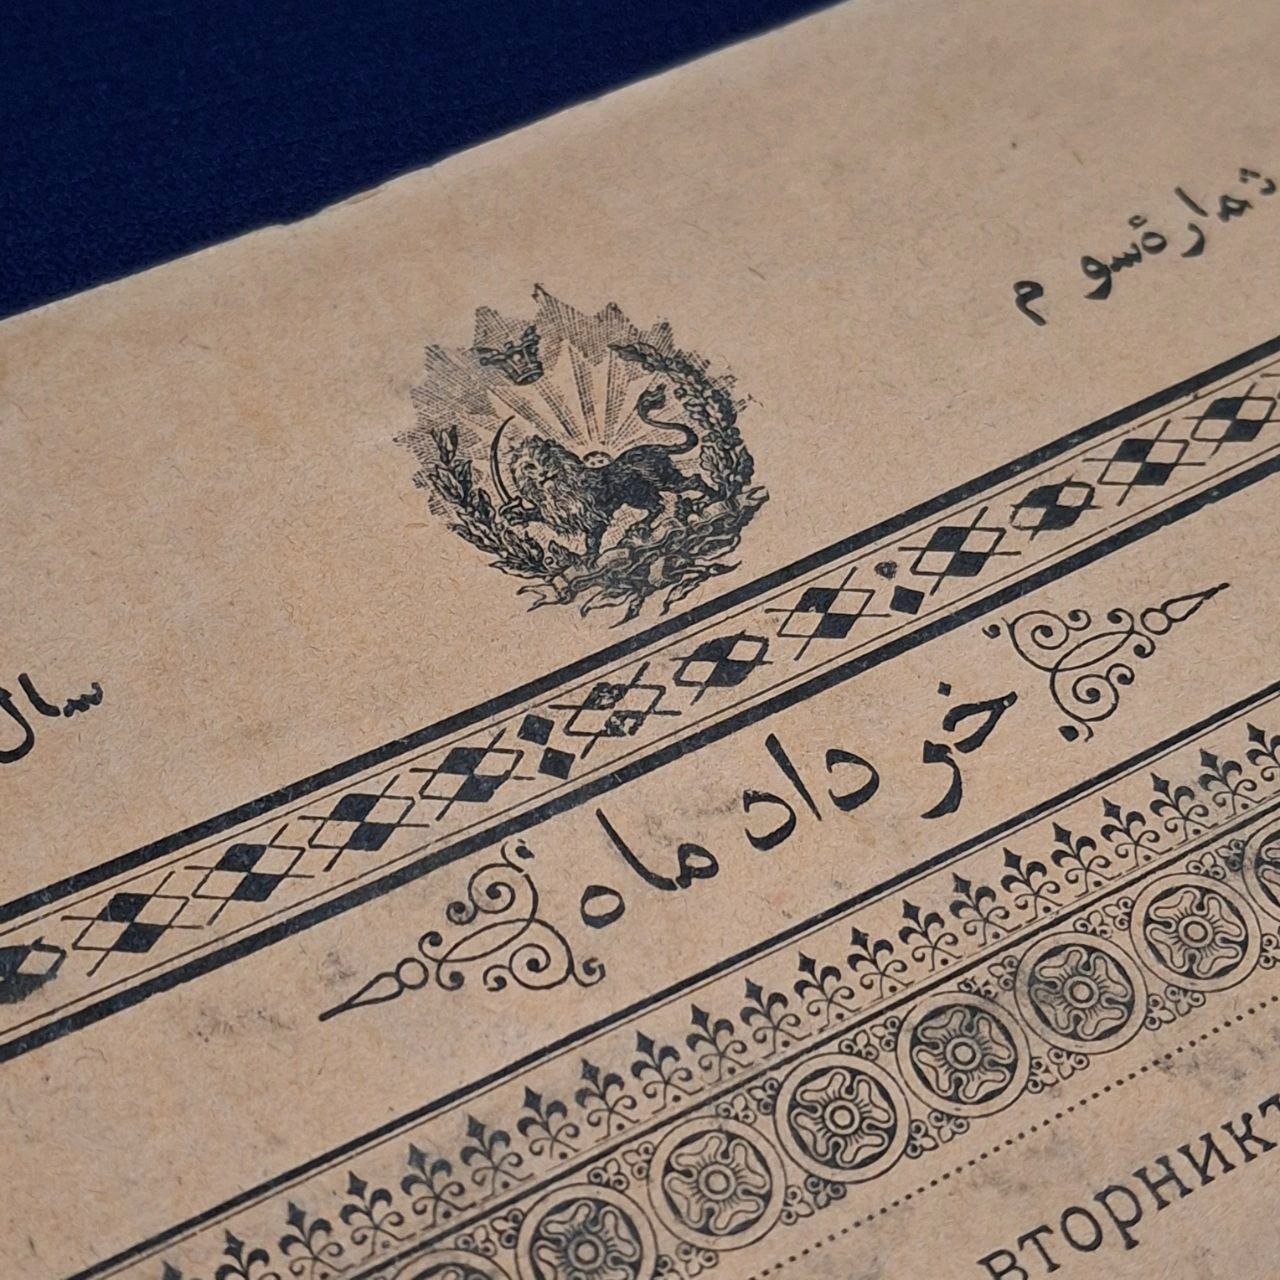 شمارهٔ سوم
سال
خرداد ماه
вторникъ